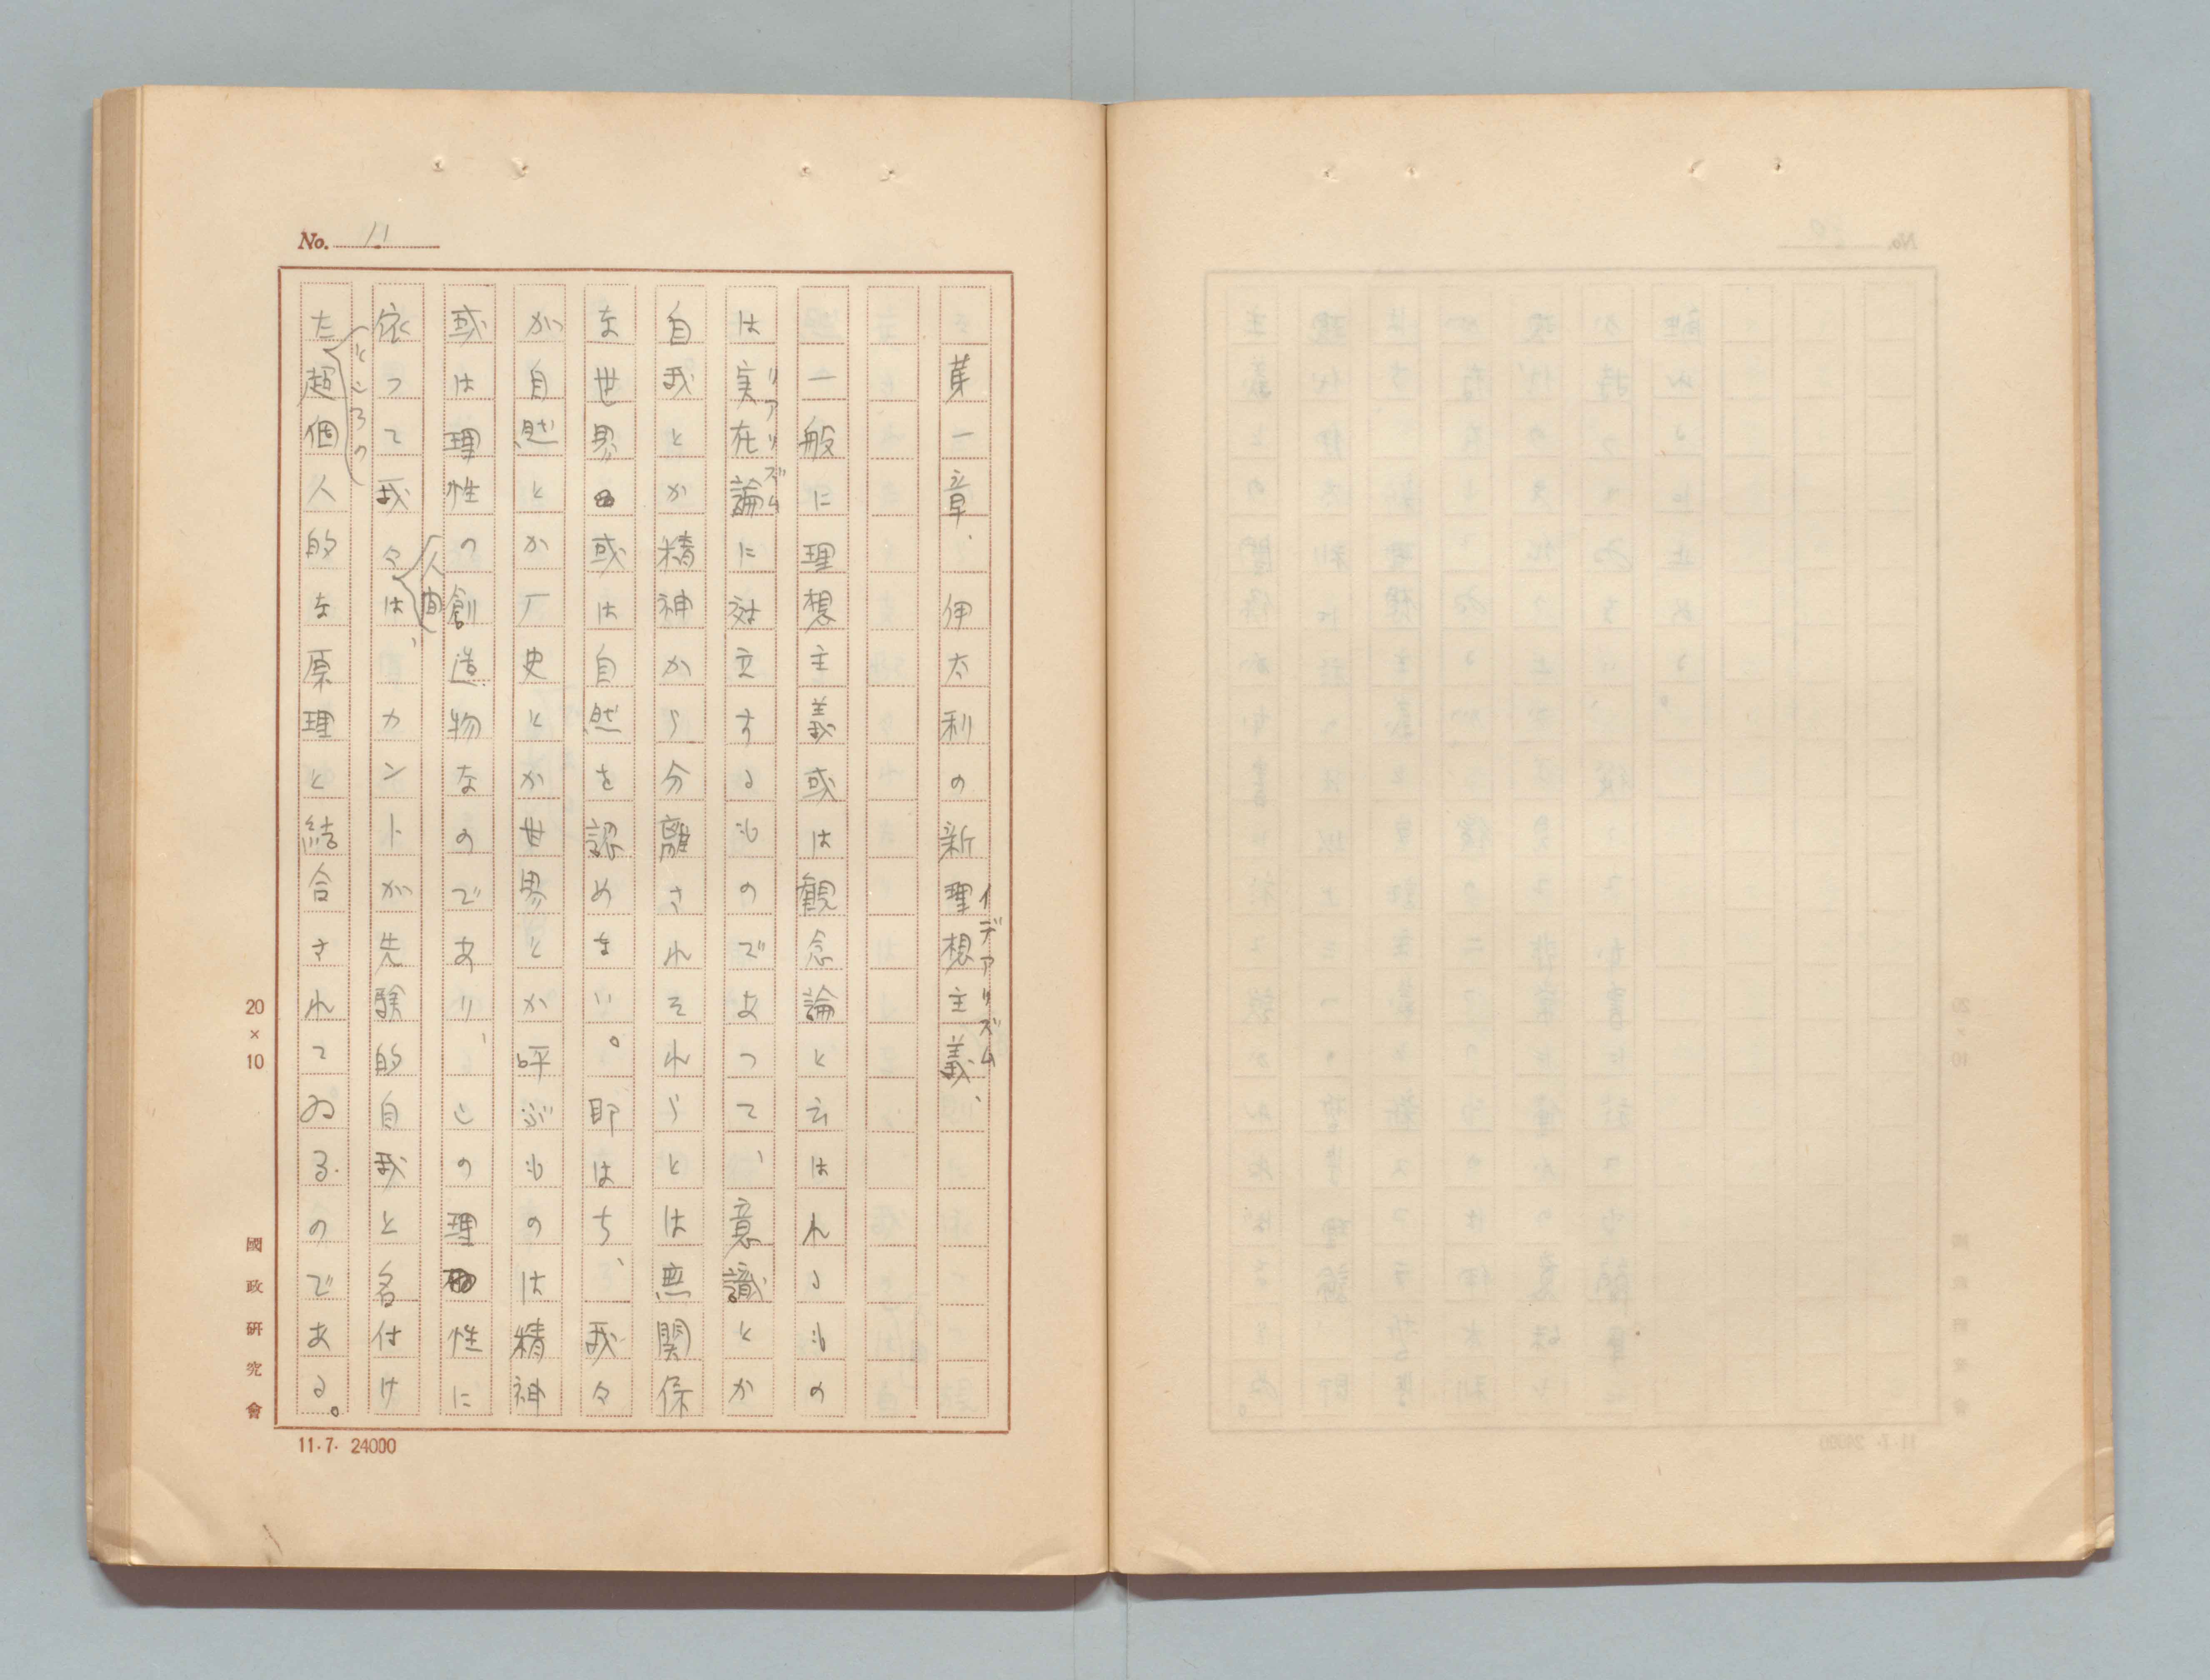 No. 11
芽一章. 伊太利の新理想主義、
イデアリズム
一般に理想主義或は観念論と云はれるもの
は実在論に対立するものであつて、意識とか
リアリズム
自我とか精神から分離されそれらとは無関係
な世界或は自然を認めない。即はち、我々
が自然とか厂史とか世界とか呼ぶものは精神
或は理性の創造物なのであり、この理性に
人間
依つて我々は、カントが先験的自我と名付け
ところの
た超個人的な原理と結合されてゐるのである。
20×10
國政研究會
11.7. 24000